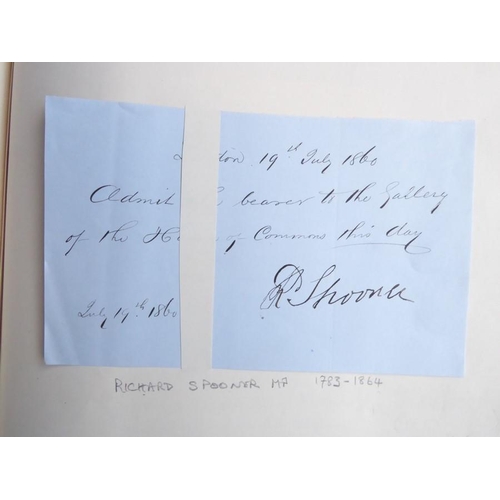 19th July 1860
Admit bearer to the Gallery
of the of Commons this day
Rd Spooner
July 19th 1860
RICHARD SPOONER MP 1783-1864